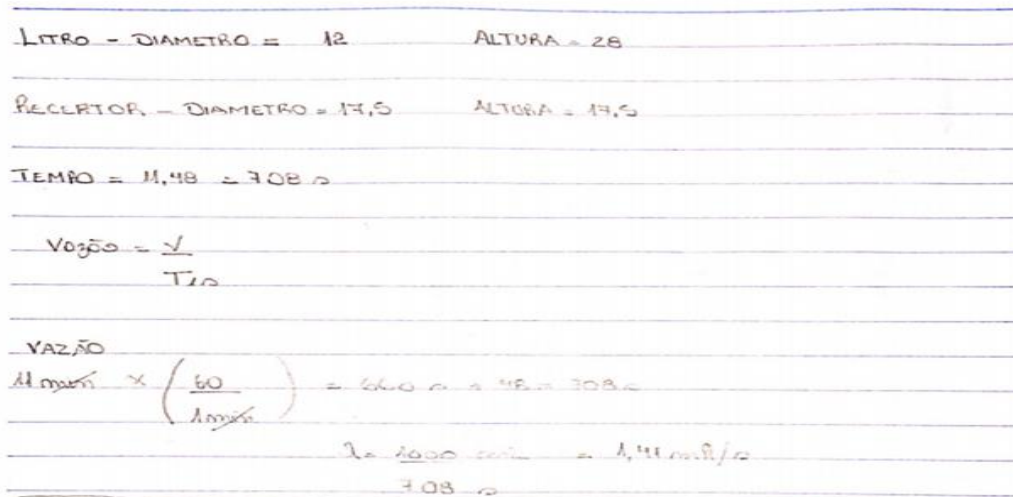 LITRO - DIAMETRO = 12 ALTURA = 28
RECEPTOR - DIAMETRO = 17,5 ALTURA = 17,5
TEMPO = 11,48 = 708 s
Vazão = V
T/s
VAZÃO
11 min × ( 60 / 1 min ) = 660 s + 48 = 708 s
1000 = 1,41 ml/s
708 s